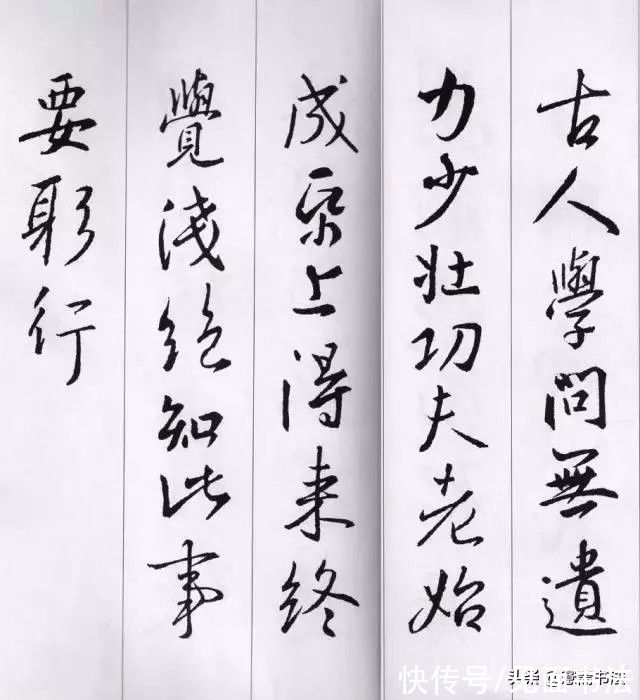 古人學問無遺
力少壯功夫老始
成帋上得来終
覺淺絕知此事
要躬行
头条
快传号/
书法